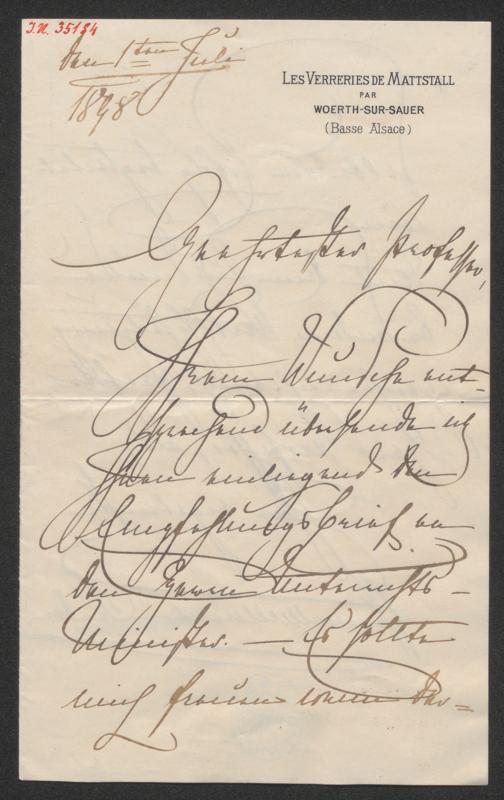 J.N. 35134
den 1ten Juli
1898
LES VERRERIES DE MATTSTALL
PAR
WOERTH-SUR-SAUER
(Basse Alsace)
Geehrtester Professor,
Ihrem Wunsche ent-
sprechend übersende ich
Ihnen einliegend den
Empfehlungsbrief an
den Herrn Unterrichts-
Minister. — Es sollte
mich freuen wenn der=